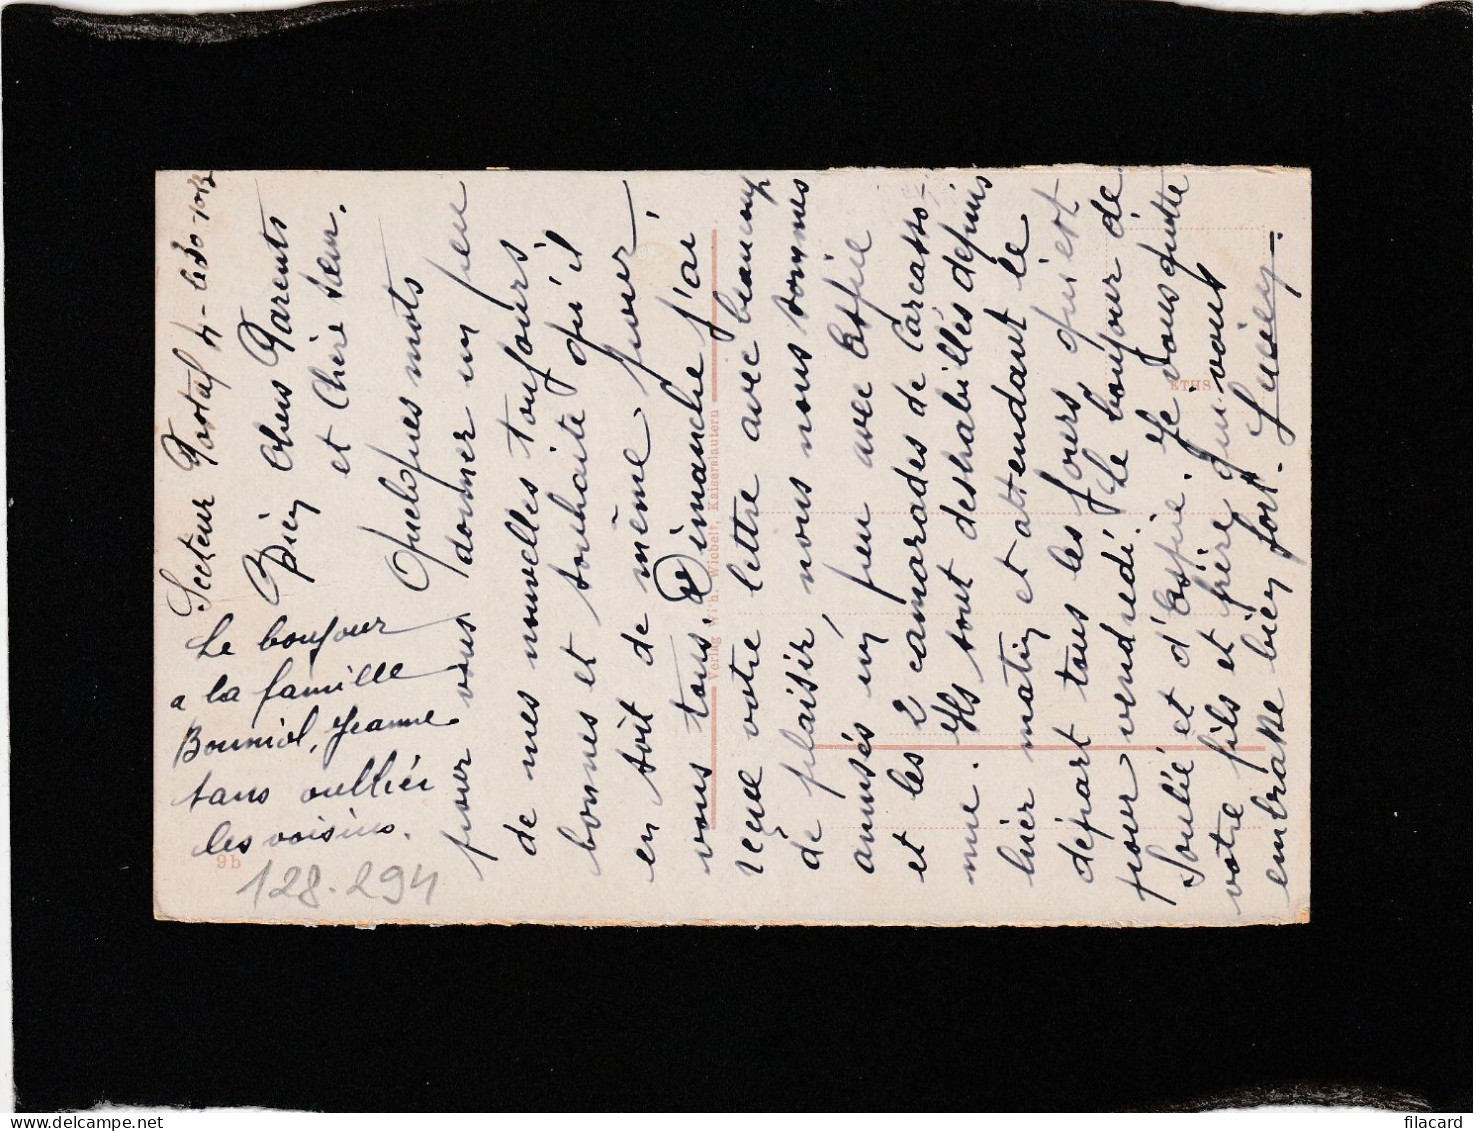 Secteur Postal 4 - le 30-
Bien Chers Parents
et Chère Sœur.
Quelques mots
pour vous donner un peu
de mes nouvelles toujours
bonnes et souhaite qu'il
en soit de même pour
vous tous. Dimanche j'ai
reçu votre lettre avec beaucoup
de plaisir, nous nous sommes
amusés un peu avec Espie
et les 2 camarades de Carcasso-
nne. Ils sont deshabillés depuis
hier matin et attendant le
départ tous les jours qui est
pour vendredi. Le bonjour de
Soulié et d'Espie. Je vous quitte
votre fils et frère qui vous
embrasse bien fort.
Le bonjour
a la famille
Bouniol, Jeanne
sans oublier
les voisins.
Verlag Wilh. Wiobelt, Kaiserslautern
ETHS
9b
128-294
filacard